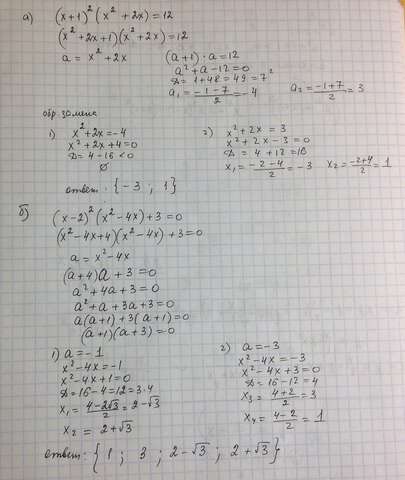 а) (x+1)² (x² + 2x) = 12
(x² + 2x + 1)(x² + 2x) = 12
a = x² + 2x (a + 1) · a = 12
a² + a - 12 = 0
D = 1 + 48 = 49 = 7²
a₁ = (-1-7)/2 = -4 a₂ = (-1+7)/2 = 3
обр. замена
1) x² + 2x = -4
x² + 2x + 4 = 0
D = 4 - 16 < 0
∅
2) x² + 2x = 3
x² + 2x - 3 = 0
D = 4 + 12 = 16
x₁ = (-2-4)/2 = -3 x₂ = (-2+4)/2 = 1
ответ: {-3 ; 1}
б) (x-2)² (x² - 4x) + 3 = 0
(x² - 4x + 4)(x² - 4x) + 3 = 0
a = x² - 4x
(a + 4) a + 3 = 0
a² + 4a + 3 = 0
a² + a + 3a + 3 = 0
a(a+1) + 3(a+1) = 0
(a+1)(a+3) = 0
1) a = -1
x² - 4x = -1
x² - 4x + 1 = 0
D = 16 - 4 = 12 = 3·4
x₁ = (4-2√3)/2 = 2-√3
x₂ = 2+√3
2) a = -3
x² - 4x = -3
x² - 4x + 3 = 0
D = 16 - 12 = 4
x₃ = (4+2)/2 = 3
x₄ = (4-2)/2 = 1
ответ: {1 ; 3 ; 2-√3 ; 2+√3}